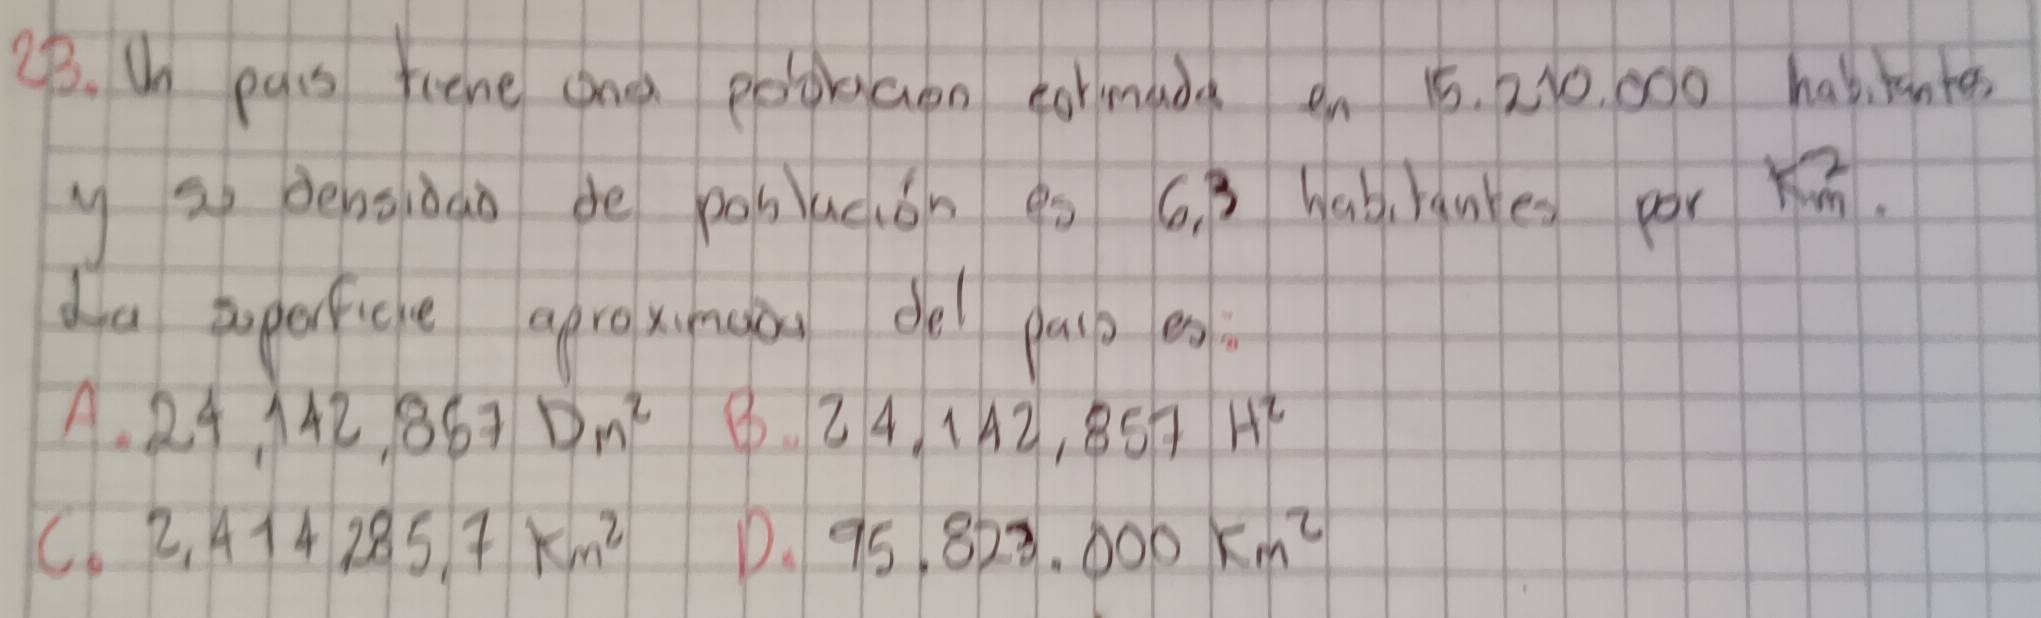 23. Un pais tiene una poblacion estimada en 15.210.000 habitantes
y su densidad de población es 6,3 habitantes por Km².
La superficie aproximada del pais es:
A. 24,142,857 Dm² B. 24,142,857 H²
C. 2,414285,7 Km² D. 95.823.000 Km²